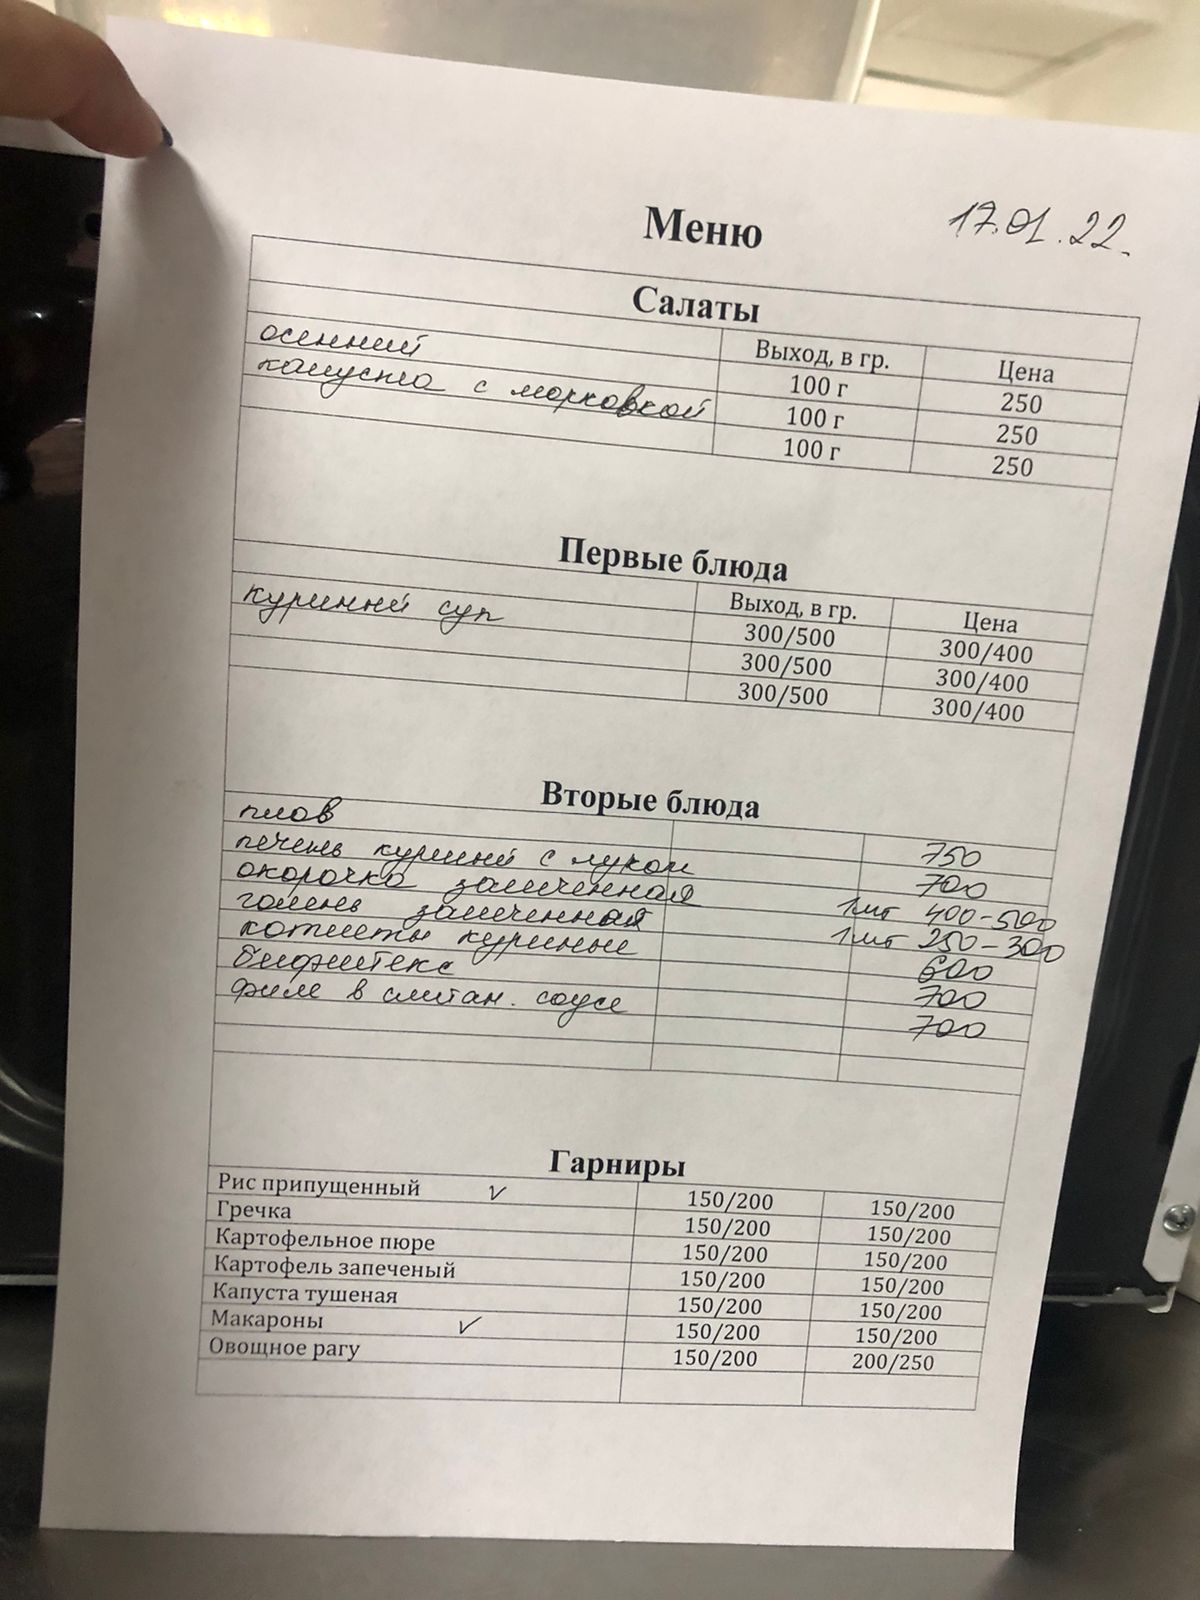 Меню
17.01.22.
Салаты
Выход, в гр. Цена
осенний 100 г 250
капуста с морковкой 100 г 250
100 г 250
Первые блюда
Выход, в гр. Цена
куриный суп 300/500 300/400
300/500 300/400
300/500 300/400
Вторые блюда
плов 750
печень куриный с луком 700
окорочка запеченная 1шт 400-500
голень запеченная 1шт 250-300
котлеты куриные 600
бифштекс 700
филе в смтан. соусе 700
Гарниры
Рис припущенный ✓ 150/200 150/200
Гречка 150/200 150/200
Картофельное пюре 150/200 150/200
Картофель запеченый 150/200 150/200
Капуста тушеная 150/200 150/200
Макароны ✓ 150/200 150/200
Овощное рагу 150/200 200/250